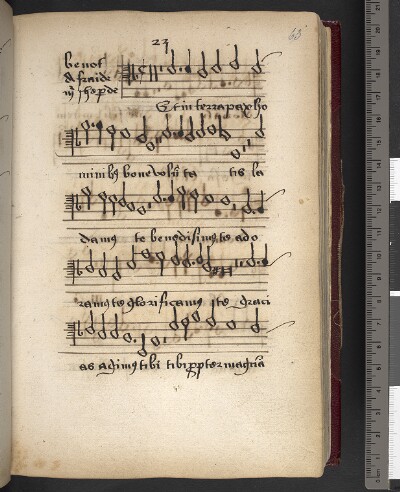 23
63
be not
Afraide
yͤ shepde
Et in terra pax ho
minibꝫ bone volūta tis la
damꝰ te benedisimꝰ te ado
ramꝰ te glorificamꝰ te graci
as agimꝰ tibi tibi ꝓpter magnā